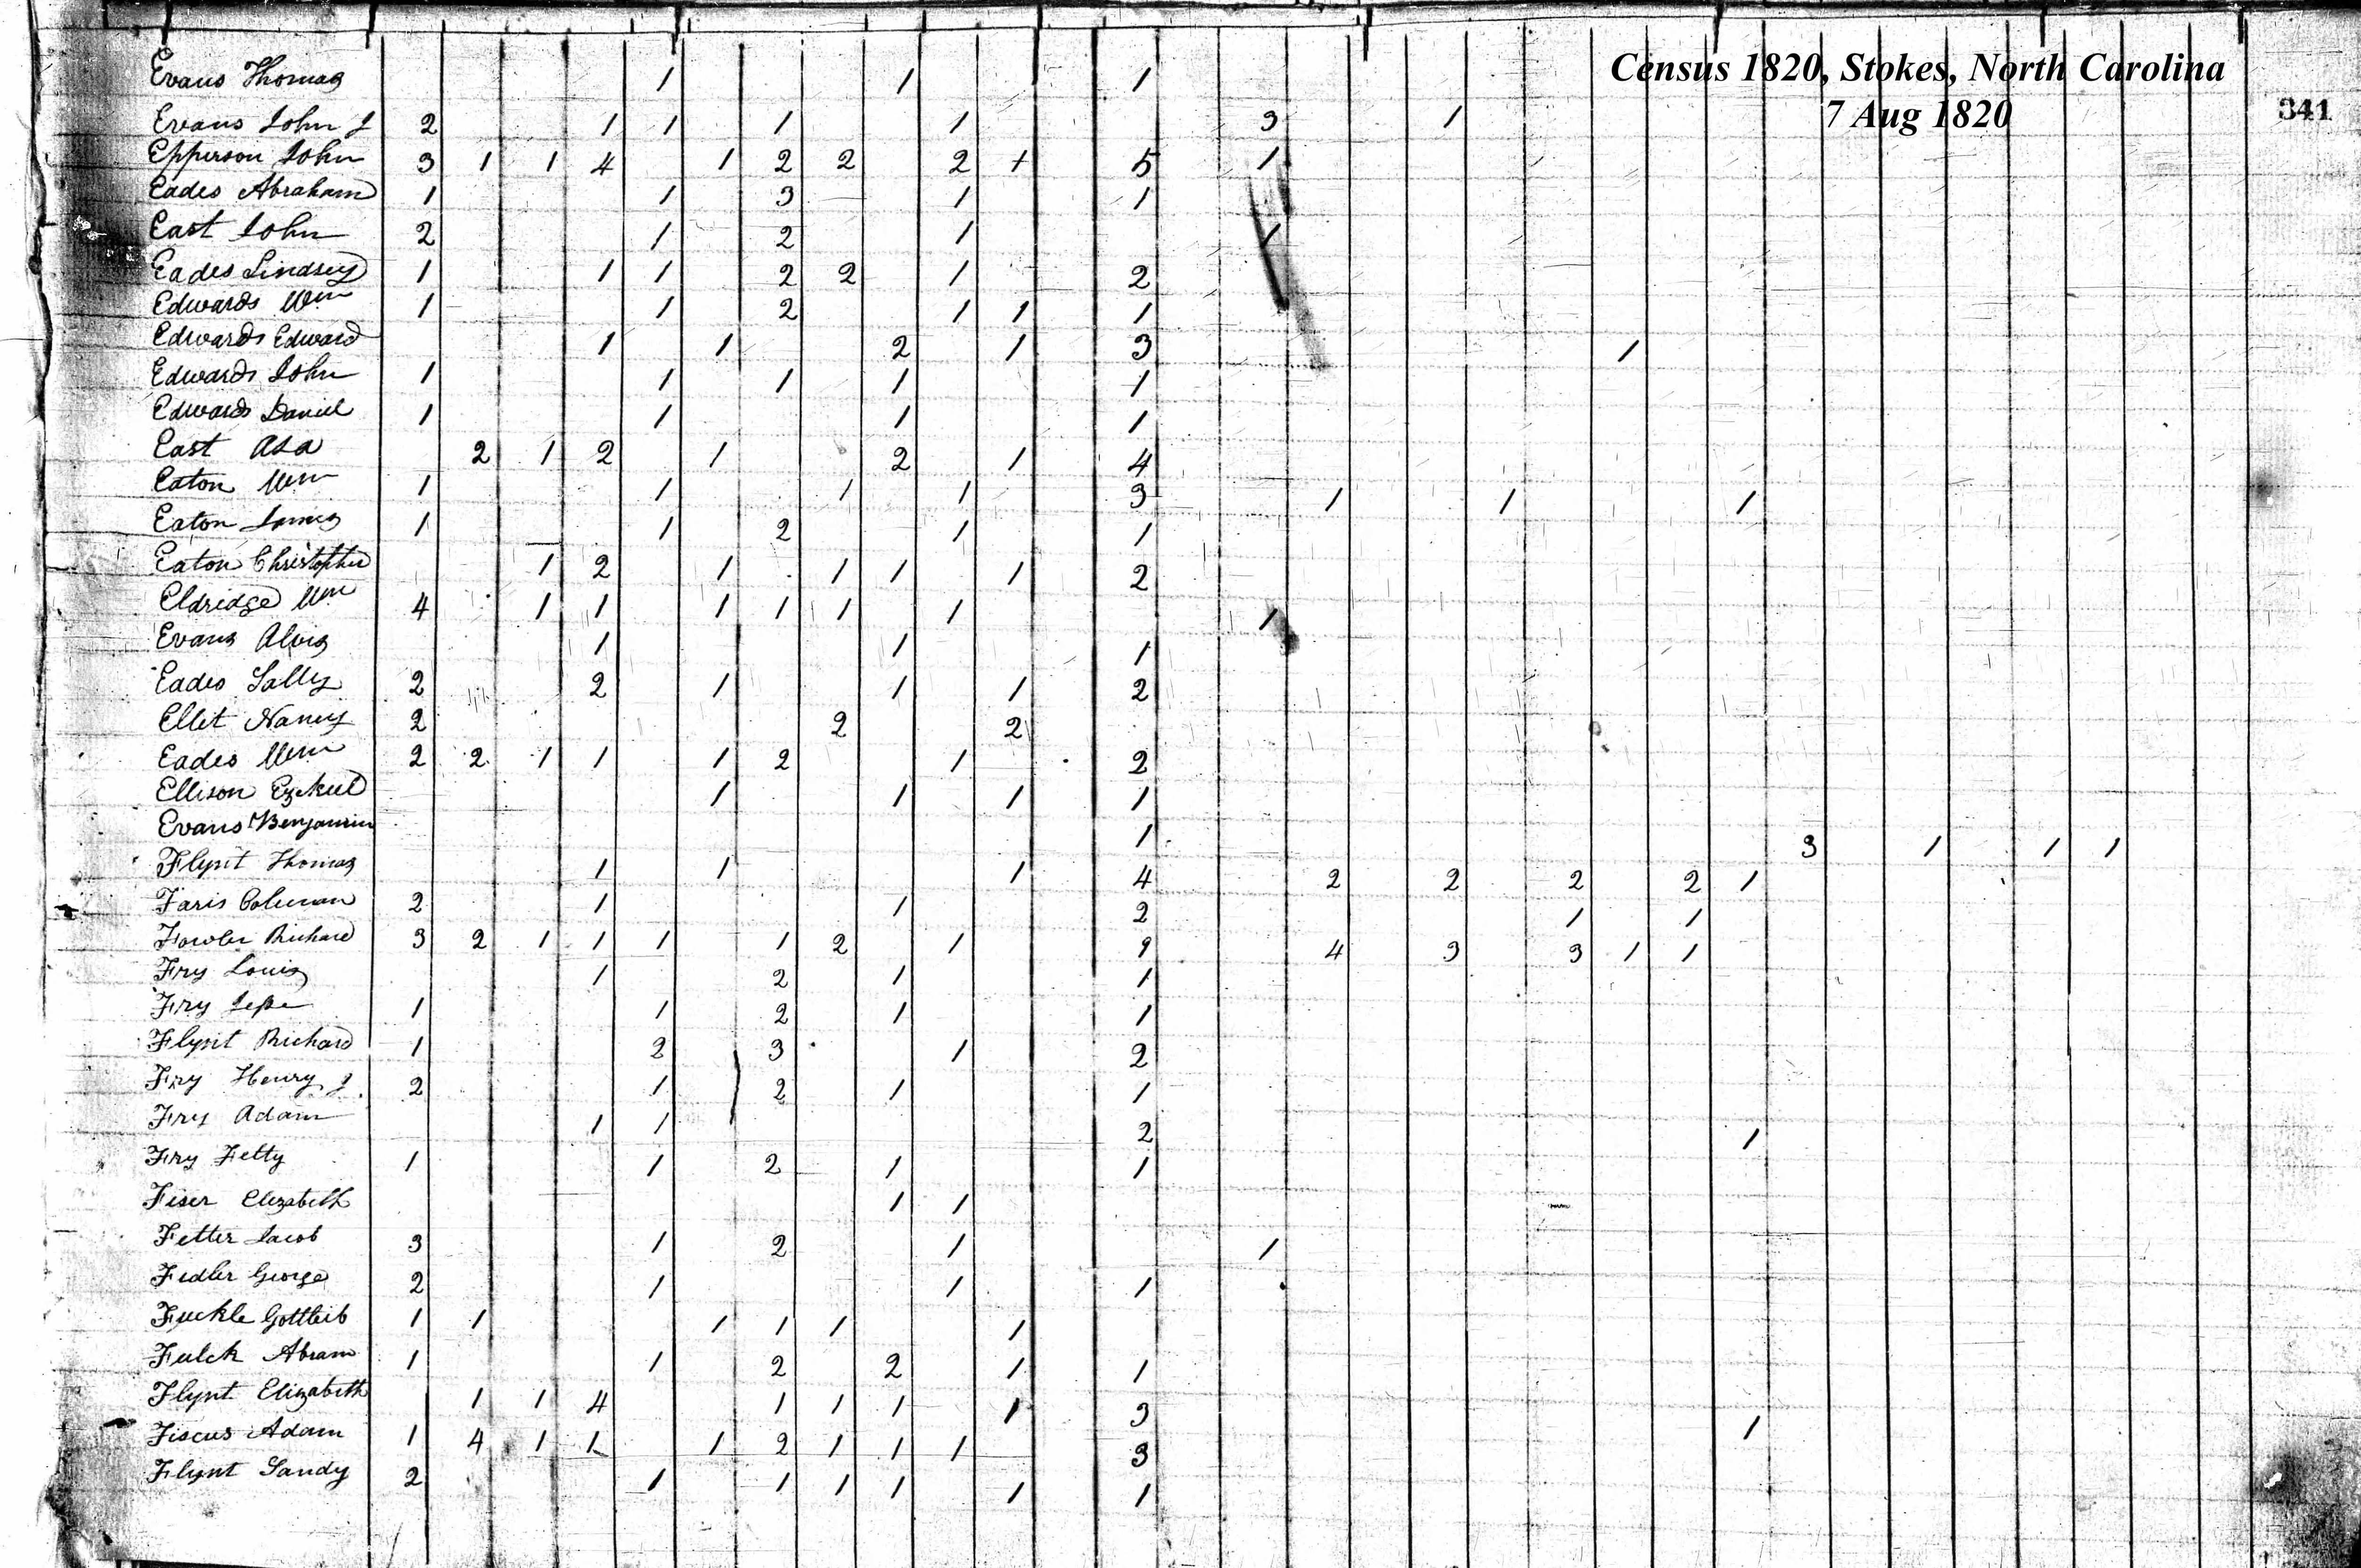 Census 1820, Stokes, North Carolina
7 Aug 1820
341
Evans Thomas 1 1 1
Evans John J 2 1 1 1 1 3 1
Epperson John 3 1 1 4 1 2 2 2 + 5 1
Eades Abraham 1 1 3 1 1
East John 2 1 2 1 1
Eades Lindsey 1 1 1 2 2 1 2
Edwards Wm 1 1 2 1 1 1
Edwards Edward 1 1 2 1 3 1
Edwards John 1 1 1 1 1
Edwards Daniel 1 1 1 1
East Asa 2 1 2 1 2 1 4
Eaton Wm 1 1 1 1 3 1 1 1
Eaton James 1 1 2 1 1
Eaton Christopher 1 2 1 1 1 1 2
Eldridge Wm 4 1 1 1 1 1 1 1
Evans Alvis 1 1 1
Eades Sally 2 2 1 1 1 2
Ellet Nancy 2 2 2
Eades Wm 2 2 1 1 1 2 1 2
Ellison Ezekiel 1 1 1 1
Evans Benjamin 1 3 1 1 1
Flynt Thomas 1 1 1 4 2 2 2 2 1
Faris Coleman 2 1 1 2 1 1
Fowler Richard 3 2 1 1 1 1 2 1 9 4 3 3 1 1
Fry Louis 1 2 1 1
Fry Jesse 1 1 2 1 1
Flynt Richard 1 2 3 1 2
Fry Henry J 2 1 2 1 1
Fry Adam 1 1 2 1
Fry Felty 1 1 2 1 1
Fiser Elizabeth 1 1
Fetter Jacob 3 1 2 1 1
Fidler George 2 1 1 1
Gottleib 1 1 1 1 1 1
Fulck Abram 1 1 2 2 1 1
Flynt Elizabeth 1 1 4 1 1 1 1 3
Fiscus Adam 1 4 1 1 1 2 1 1 1 3 1
Flynt Sandy 2 1 1 1 1 1 1